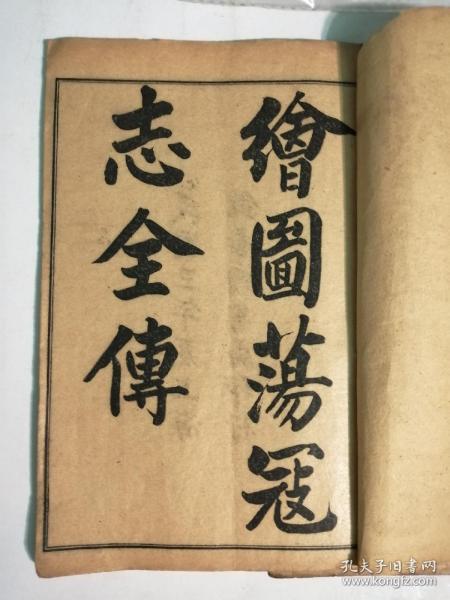 繪圖蕩寇
志全傳
孔夫子旧书网
www.kongfz.com